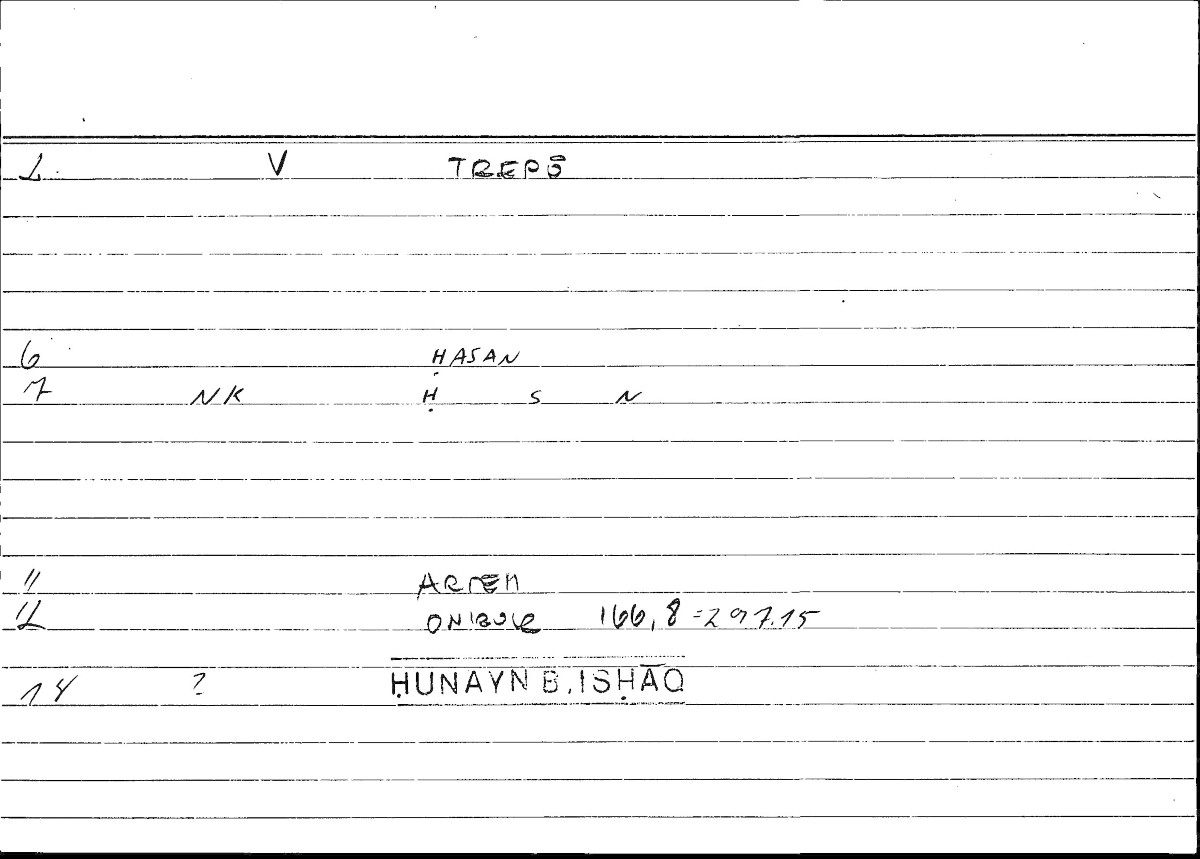 1 V TREPŌ
6 ḤASAN
7 NK Ḥ S N
11 ARTEM
12 ONIBUR 166,8 = 297.15
14 ? ḤUNAYN B. ISḤĀQ